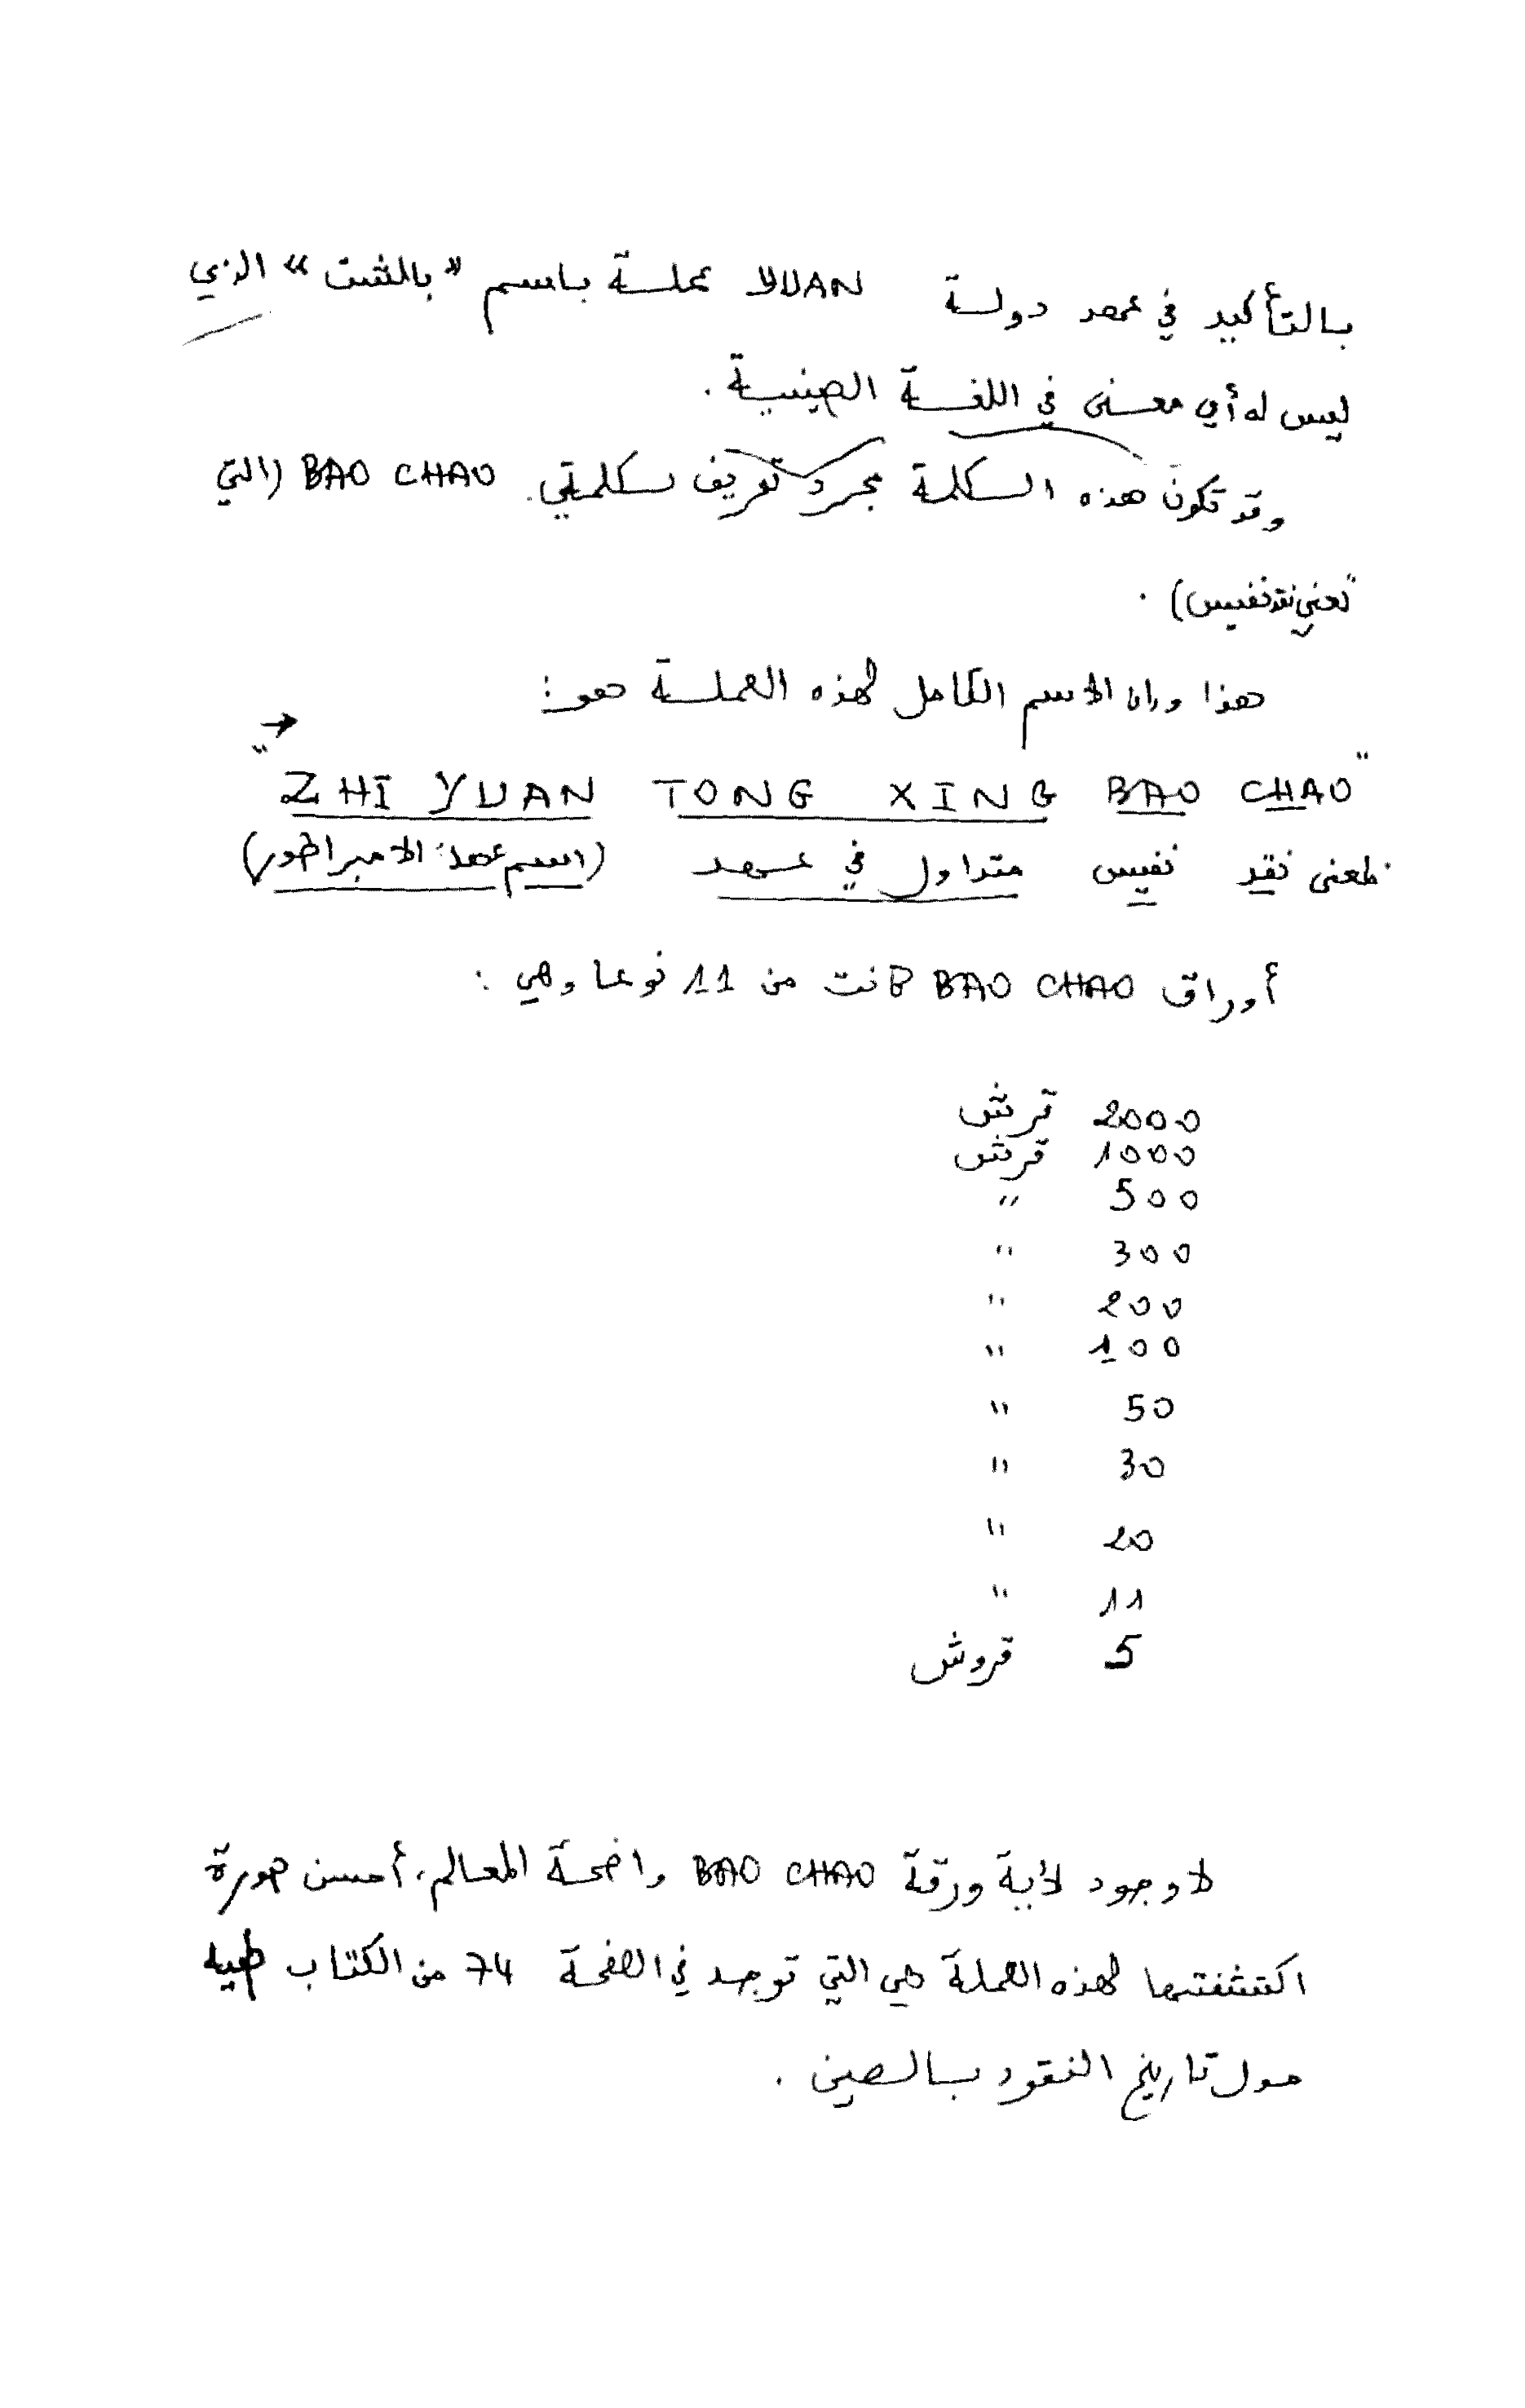 بالتأكيد في عهد دولة YUAN عملة باسم "بالشت" الذي
ليس له أي معنى في اللغة الصينية.
وقد تكون هذه الكلمة مجرد تعريف لكلمتي BAO CHAO (التي
تعني نقد نفيس).
هذا وإن الاسم الكامل لهذه العملة هو:
→
"ZHI YUAN TONG XING BAO CHAO"
بمعنى نقد نفيس متداول في عهد (اسم عهد الامبراطور)
أوراق BAO CHAO كانت من 11 نوعا وهي:
2000 قرش
1000 قرش
500 "
300 "
200 "
100 "
50 "
30 "
20 "
11 "
5 قروش
لا وجود لأية ورقة BAO CHAO واضحة المعالم، أحسن صورة
اكتشفتها لهذه العملة هي التي توجد في الصفحة 74 من الكتاب طيه
حول تاريخ النقود بالصين.